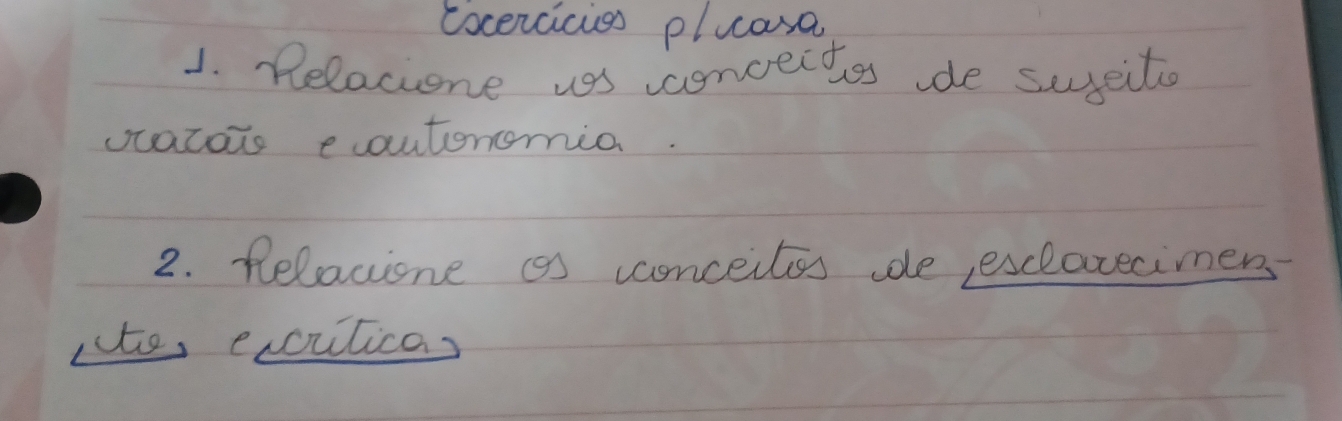 Excercícios p/ casa
1. Relacione os conceitos de sujeito
razão e autonomia.
2. Relacione os conceitos de esclarecimen-
to e crítica